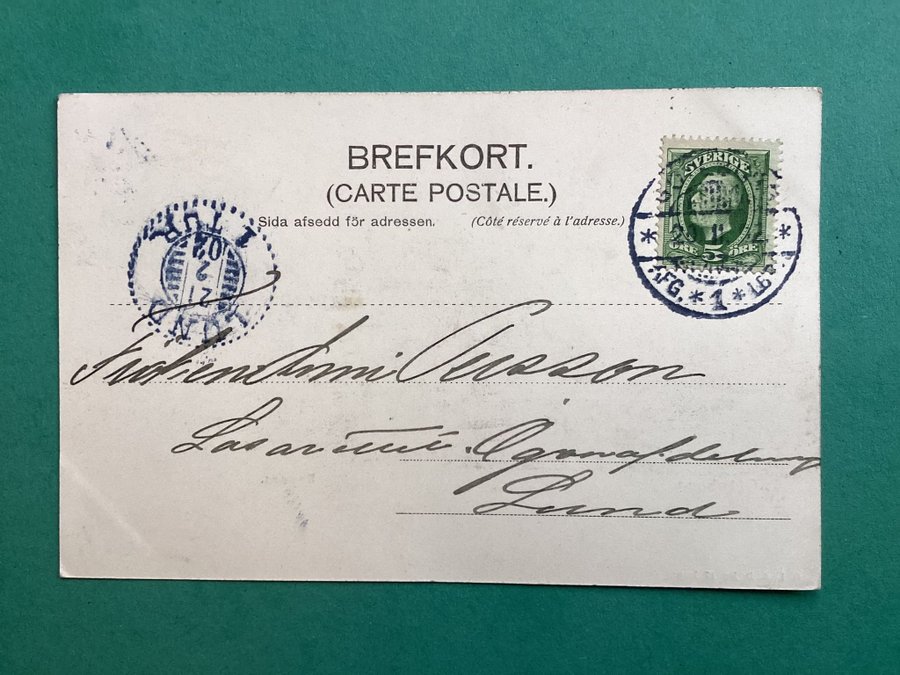 BREFKORT.
(CARTE POSTALE.)
Sida afsedd för adressen. (Côté réservé à l'adresse.)
SVERIGE
5
ÖRE ÖRE
* 1 *
1 TUR
02
2
21
LUND
Fröken
Lasarettet Ögonafdelning
Lund